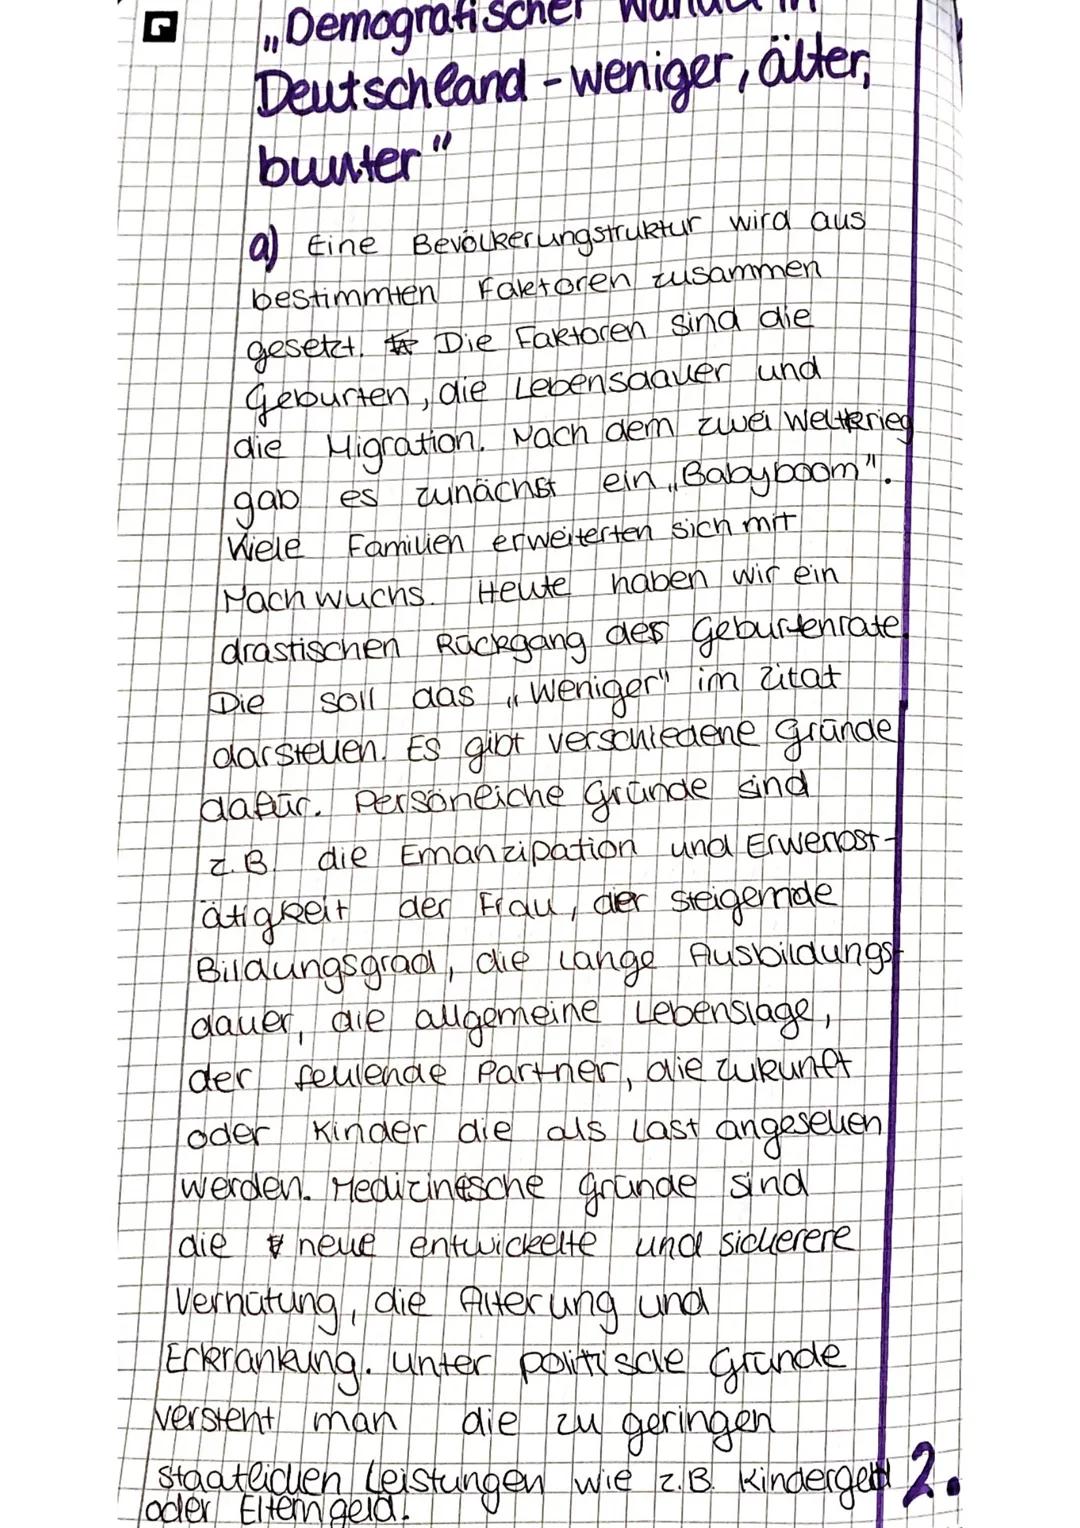 „Demografischer Wandel in
Deutschland - weniger, älter,
bunter"
a) Eine Bevölkerungstruktur wird aus
bestimmten Faktoren zusammen
gesetzt. Die Faktoren sind die
Geburten, die Lebensdauer und
die Migration. Nach dem zwei Weltkrieg
gab es zunächst ein „Babyboom".
Viele Familien erweiterten sich mit
Nachwuchs. Heute haben wir ein
drastischen Rückgang der Geburtenrate.
Die soll das „Weniger" im Zitat
darstellen. Es gibt verschiedene Gründe
dafür. Persönliche Gründe sind
z.B. die Emanzipation und Erwerbst-
ätigkeit der Frau, der steigernde
Bildungsgrad, die lange Ausbildungs-
dauer, die allgemeine Lebenslage,
der fehlende Partner, die Zukunft
oder Kinder die als Last angesehen
werden. Medizinische Gründe sind
die neue entwickelte und sicherere
Verhütung, die Alterung und
Erkrankung. Unter politische Gründe
versteht man die zu geringen
staatlichen Leistungen wie z.B. Kindergeld
oder Elterngeld.
2.